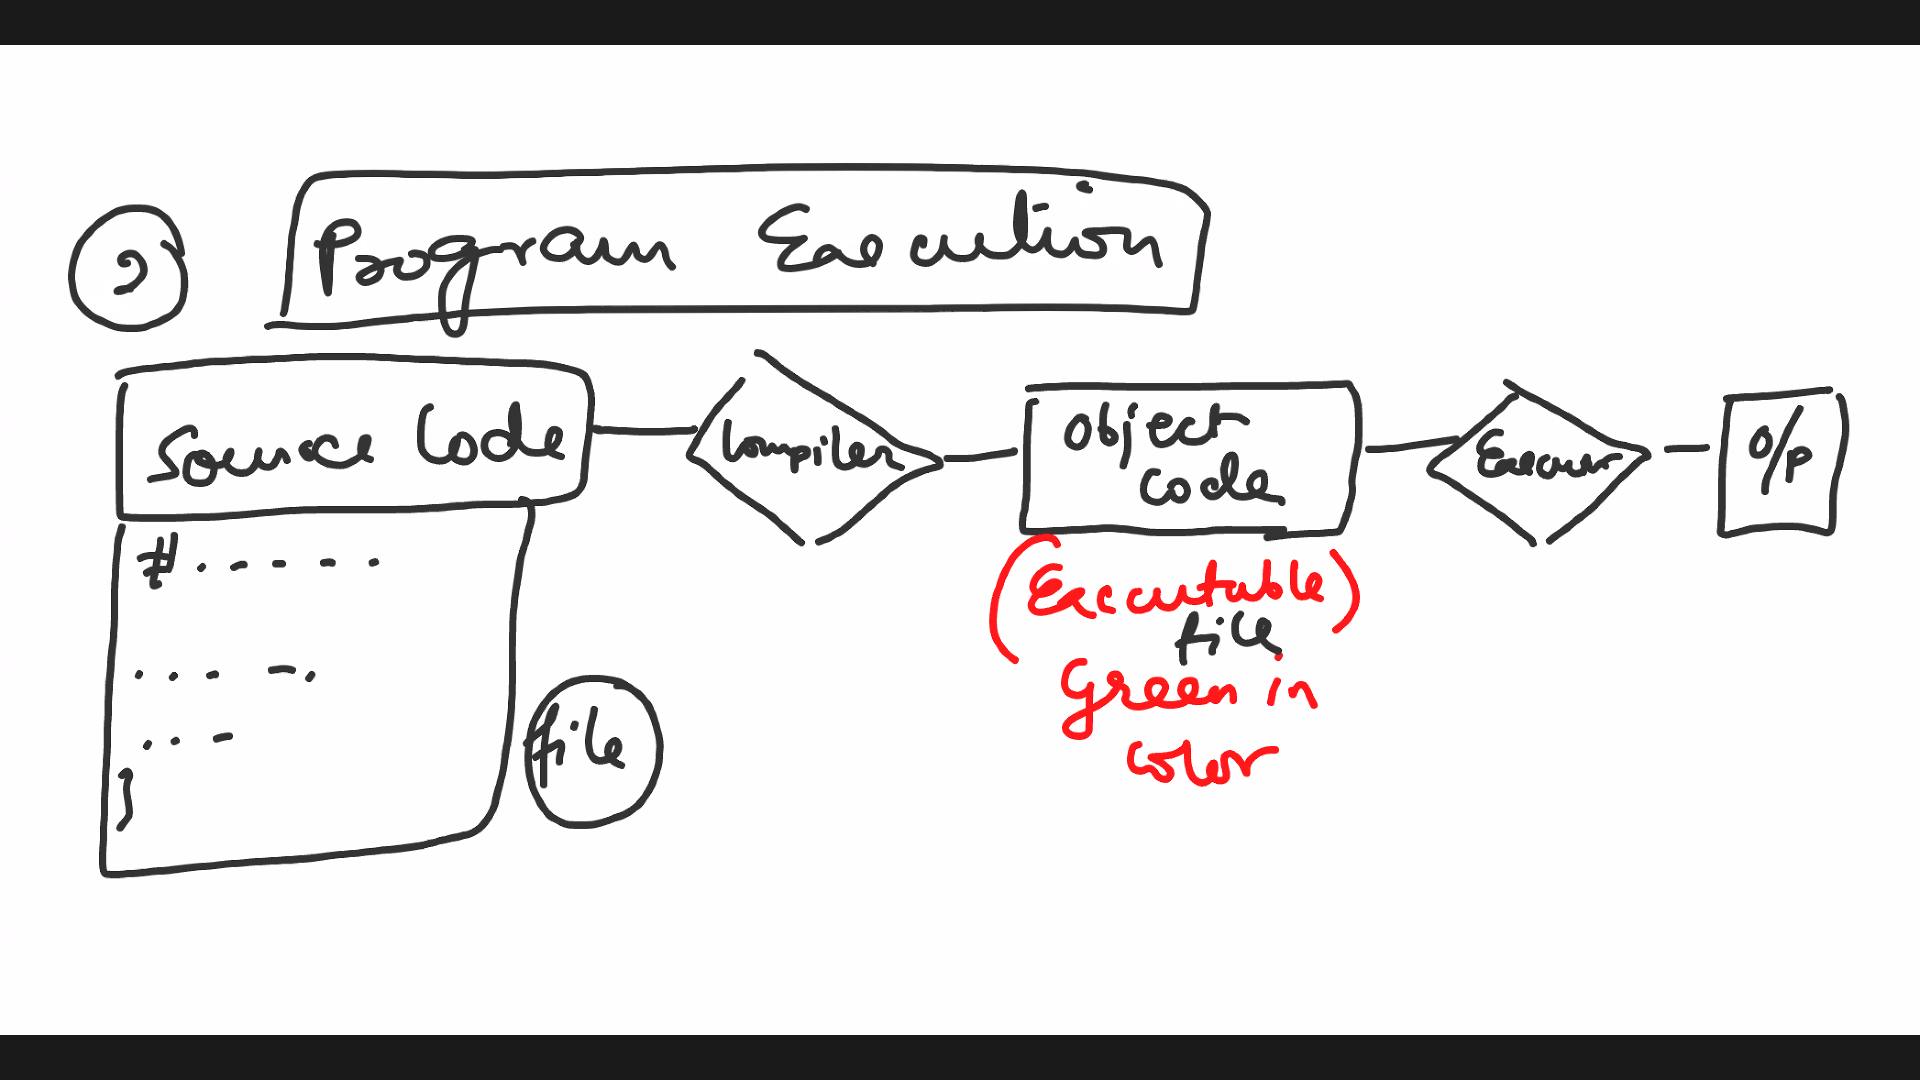 2
Program Execution
Source Code
Compiler
Object
code
Executor
O/P
# . - - - .
. . - - .
. . -
}
file
(Executable)
file
Green in
color